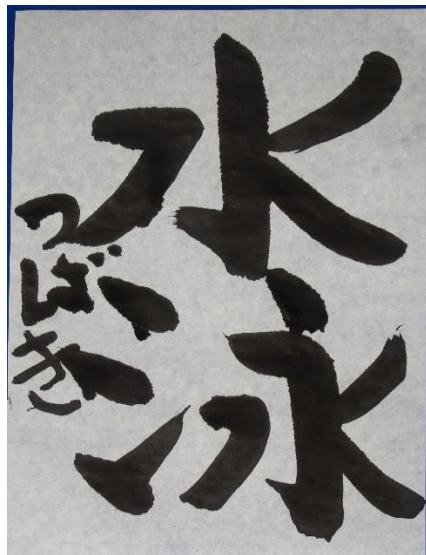 水泳
つばき